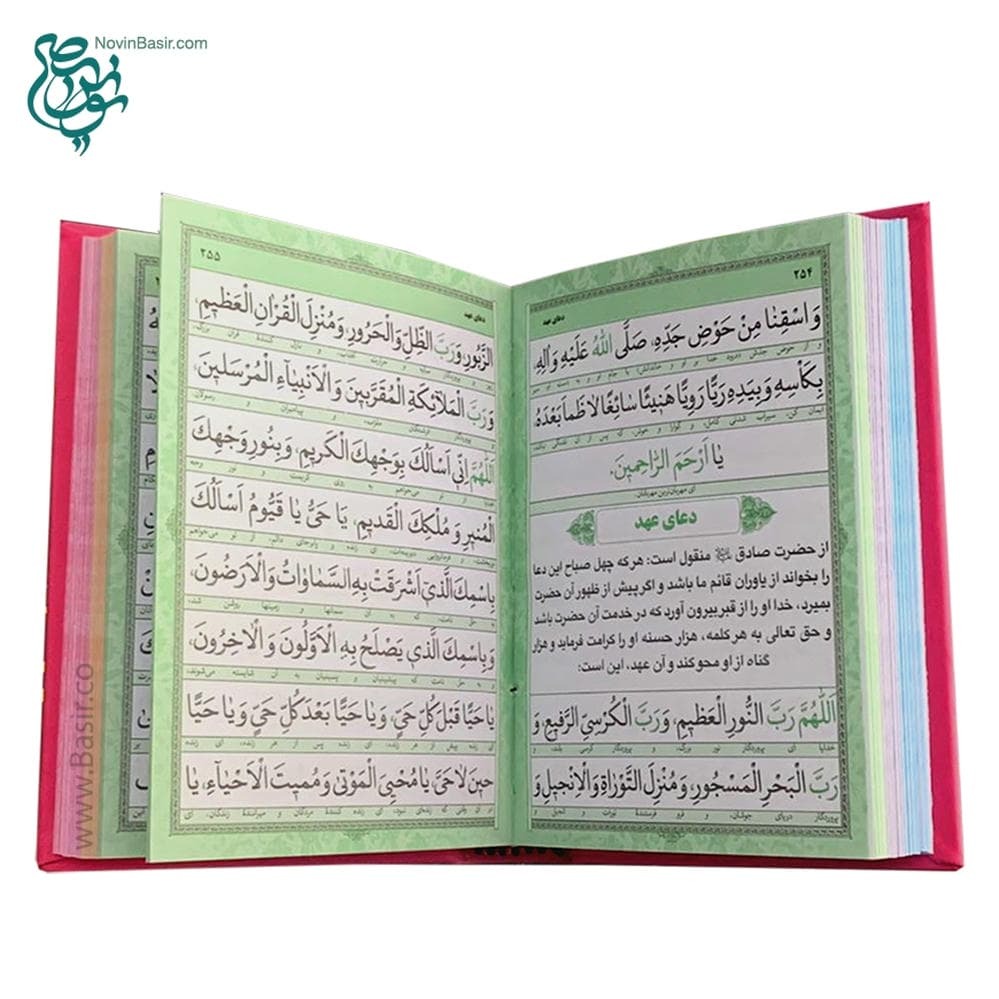 NovinBasir.com
۲۵۴
دعای عهد
وَاسْقِنٰا مِنْ حَوْضِ جَدِّهِ، صَلَّى اللّٰهُ عَلَيْهِ وَاٰلِهِ،
بِكَاْسِهِ وَبِيَدِهِ رَيًّا رَوِيًّا هَنيٓئًا سٰائِغًا لاٰ ظَمَاَ بَعْدَهُ
يٰا اَرْحَمَ الرّٰاحِمينَ.
ای مهربان‌ترین مهربانان
دعای عهد
از حضرت صادق منقول است: هر که چهل صباح این دعا
را بخواند از یاوران قائم ما باشد و اگر پیش از ظهور آن حضرت
بمیرد، خدا او را از قبر بیرون آورد که در خدمت آن حضرت باشد
و حق تعالی به هر کلمه، هزار حسنه او را کرامت فرماید و هزار
گناه از او محو کند و آن عهد، این است:
اَللّٰهُمَّ رَبَّ النُّورِ الْعَظيمِ، وَرَبَّ الْكُرْسِيِّ الرَّفيعِ، وَ
خدایا ای پروردگار نور بزرگ، و پروردگار کرسی بلند، و
رَبَّ الْبَحْرِ الْمَسْجُورِ، وَمُنْزِلَ التَّوْرٰاةِ وَالْاِنْجيلِ وَ
پروردگار دریای جوشان، و فرو فرستندهٔ تورات و انجیل و
۲۵۵
دعای عهد
الزَّبُورِ، وَرَبَّ الظِّلِّ وَالْحَرُورِ، وَمُنْزِلَ الْقُرْاٰنِ الْعَظيمِ،
وَرَبَّ الْمَلاٰئِكَةِ الْمُقَرَّبينَ وَالْاَنْبِيٰاءِ الْمُرْسَلينَ،
اَللّٰهُمَّ اِنّي اَسْاَلُكَ بِوَجْهِكَ الْكَريمِ، وَبِنُورِ وَجْهِكَ
الْمُنيرِ وَمُلْكِكَ الْقَديمِ، يٰا حَيُّ يٰا قَيُّومُ اَسْاَلُكَ
بِاسْمِكَ الَّذي اَشْرَقَتْ بِهِ السَّمٰاوٰاتُ وَالْاَرَضُونَ،
وَبِاسْمِكَ الَّذي يَصْلَحُ بِهِ الْاَوَّلُونَ وَالْاٰخِرُونَ،
يٰا حَيًّا قَبْلَ كُلِّ حَيٍّ، وَيٰا حَيًّا بَعْدَ كُلِّ حَيٍّ وَيٰا حَيًّا
حينَ لاٰ حَيَّ، يٰا مُحْيِيَ الْمَوْتىٰ وَمُميتَ الْاَحْيٰاءِ، يٰا
www.Basir.co